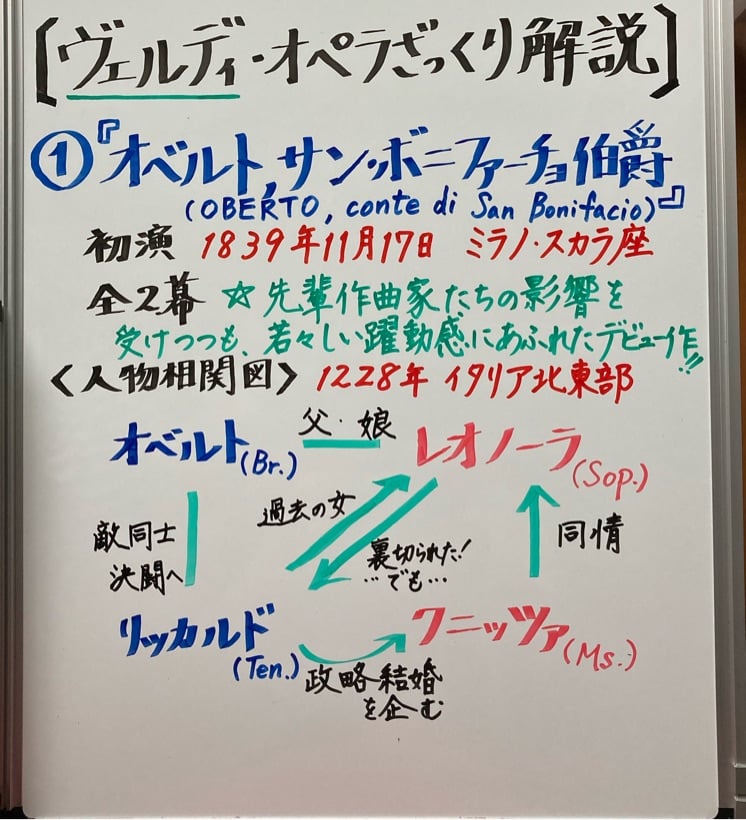 [ヴェルディ・オペラざっくり解説]
①『オベルト,サン・ボニファーチョ伯爵
(OBERTO, conte di San Bonifacio)』
初演 1839年11月17日 ミラノ・スカラ座
全2幕 ☆先輩作曲家たちの影響を
受けつつも、若々しい躍動感にあふれたデビュー作!!
〈人物相関図〉 1228年 イタリア北東部
オベルト(Br.) 父・娘 レオノーラ(Sop.)
敵同士
決闘へ
過去の女
裏切られた!
…でも…
同情
リッカルド(Ten.)
クニッツァ(Ms.)
政略結婚
を企む